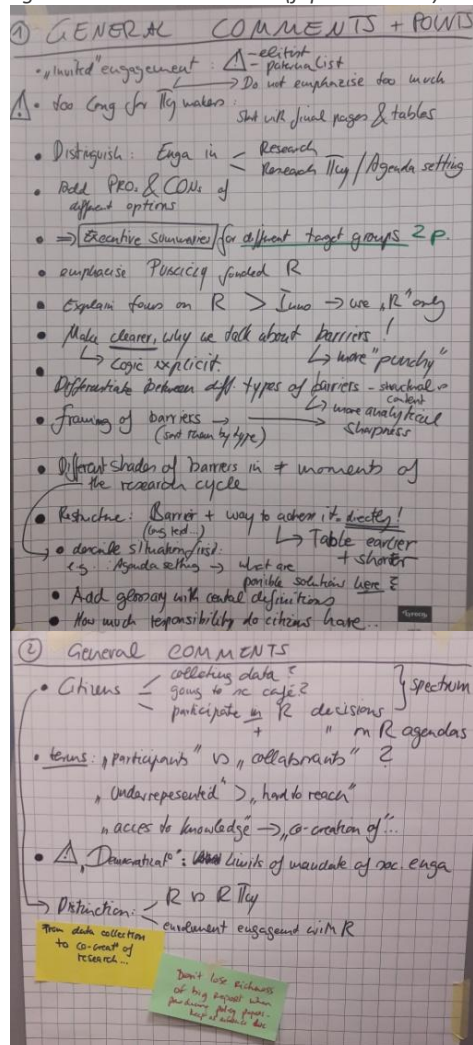 ① GENERAL COMMENTS + POINTS
• "Invited" engagement: ⚠ - elitist
- paternalist
→ Do not emphazise too much
⚠ • too long for Πcy makers:
Start with final pages & tables
• Distinguish: Enga in < Research
Research Πcy / Agenda setting
• Add PROs & CONs of
different options
• ⇒ Executive Summaries for different target groups 2 p.
• emphasise PUBLICLY funded R
• Explain focus on R > Inno → use "R" only
• Make clearer, why we talk about barriers!
↳ Logic explicit. ↳ more "punchy"
• Differentiate between diff. types of barriers - structural vs
content
↳ more analytical
sharpness
• framing of barriers →
(sort them by type)
• Different shades of barriers in ≠ moments of
the research cycle
• Restructure: Barrier + way to achieve it directly!
↳ Table earlier
+ shorter
• describe situation first:
e.g. Agenda setting → what are
possible solutions here?
• Add glossary with central definitions
• How much responsibility do citizens have...
② General COMMENTS
• Citizens - collecting data?
- going to sc café?
- participate in R decisions
+ " in R agendas
} spectrum
• terms: "participants" vs "collaborants" ?
"Underrepesented" > "hard to reach"
"acces to knowledge" → "co-creation of"...
• ⚠ "Democratical": Limits of mandate of soc. enga
→ Distinction: < R vs R Πcy
engagement with R
From data collection
to co-creat° of
research...
Don't lose richness
of big report when
producing policy papers.
keep as evidence doc